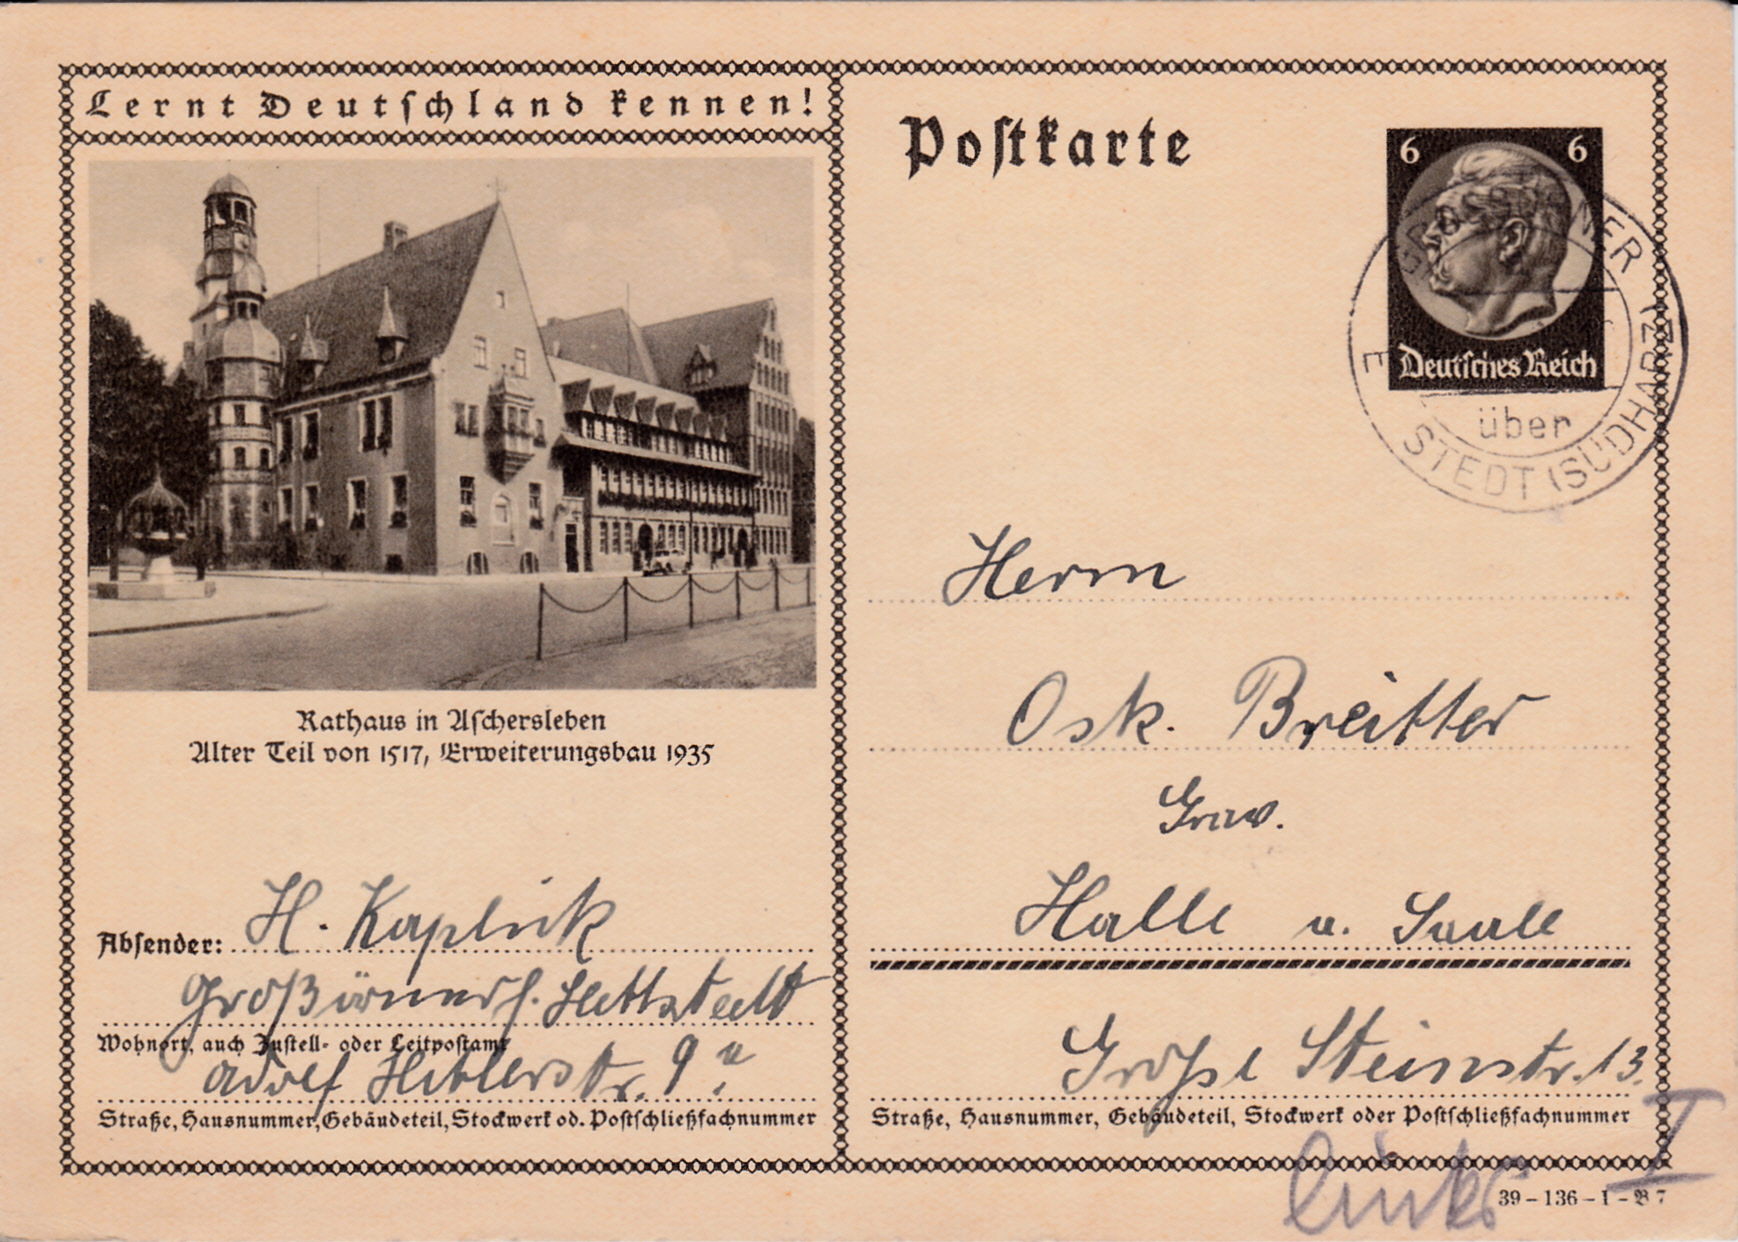 Lernt Deutschland kennen!
Rathaus in Aschersleben
Alter Teil von 1517, Erweiterungsbau 1935
Absender: H. Kaplick
Großörner b. Hettstedt
Wohnort, auch Zustell- oder Leitpostamt
Adolf Hitlerstr. 9
Straße, Hausnummer, Gebäudeteil, Stockwerk od. Postschließfachnummer
Postkarte
6 6
Deutsches Reich
über
STEDT (SÜDHARZ)
Herrn
Osk. Breitter
Grav.
Halle a. Saale
Große Steinstr. 13.
Straße, Hausnummer, Gebäudeteil, Stockwerk oder Postschließfachnummer
I
links
39 – 136 – 1 – B 7